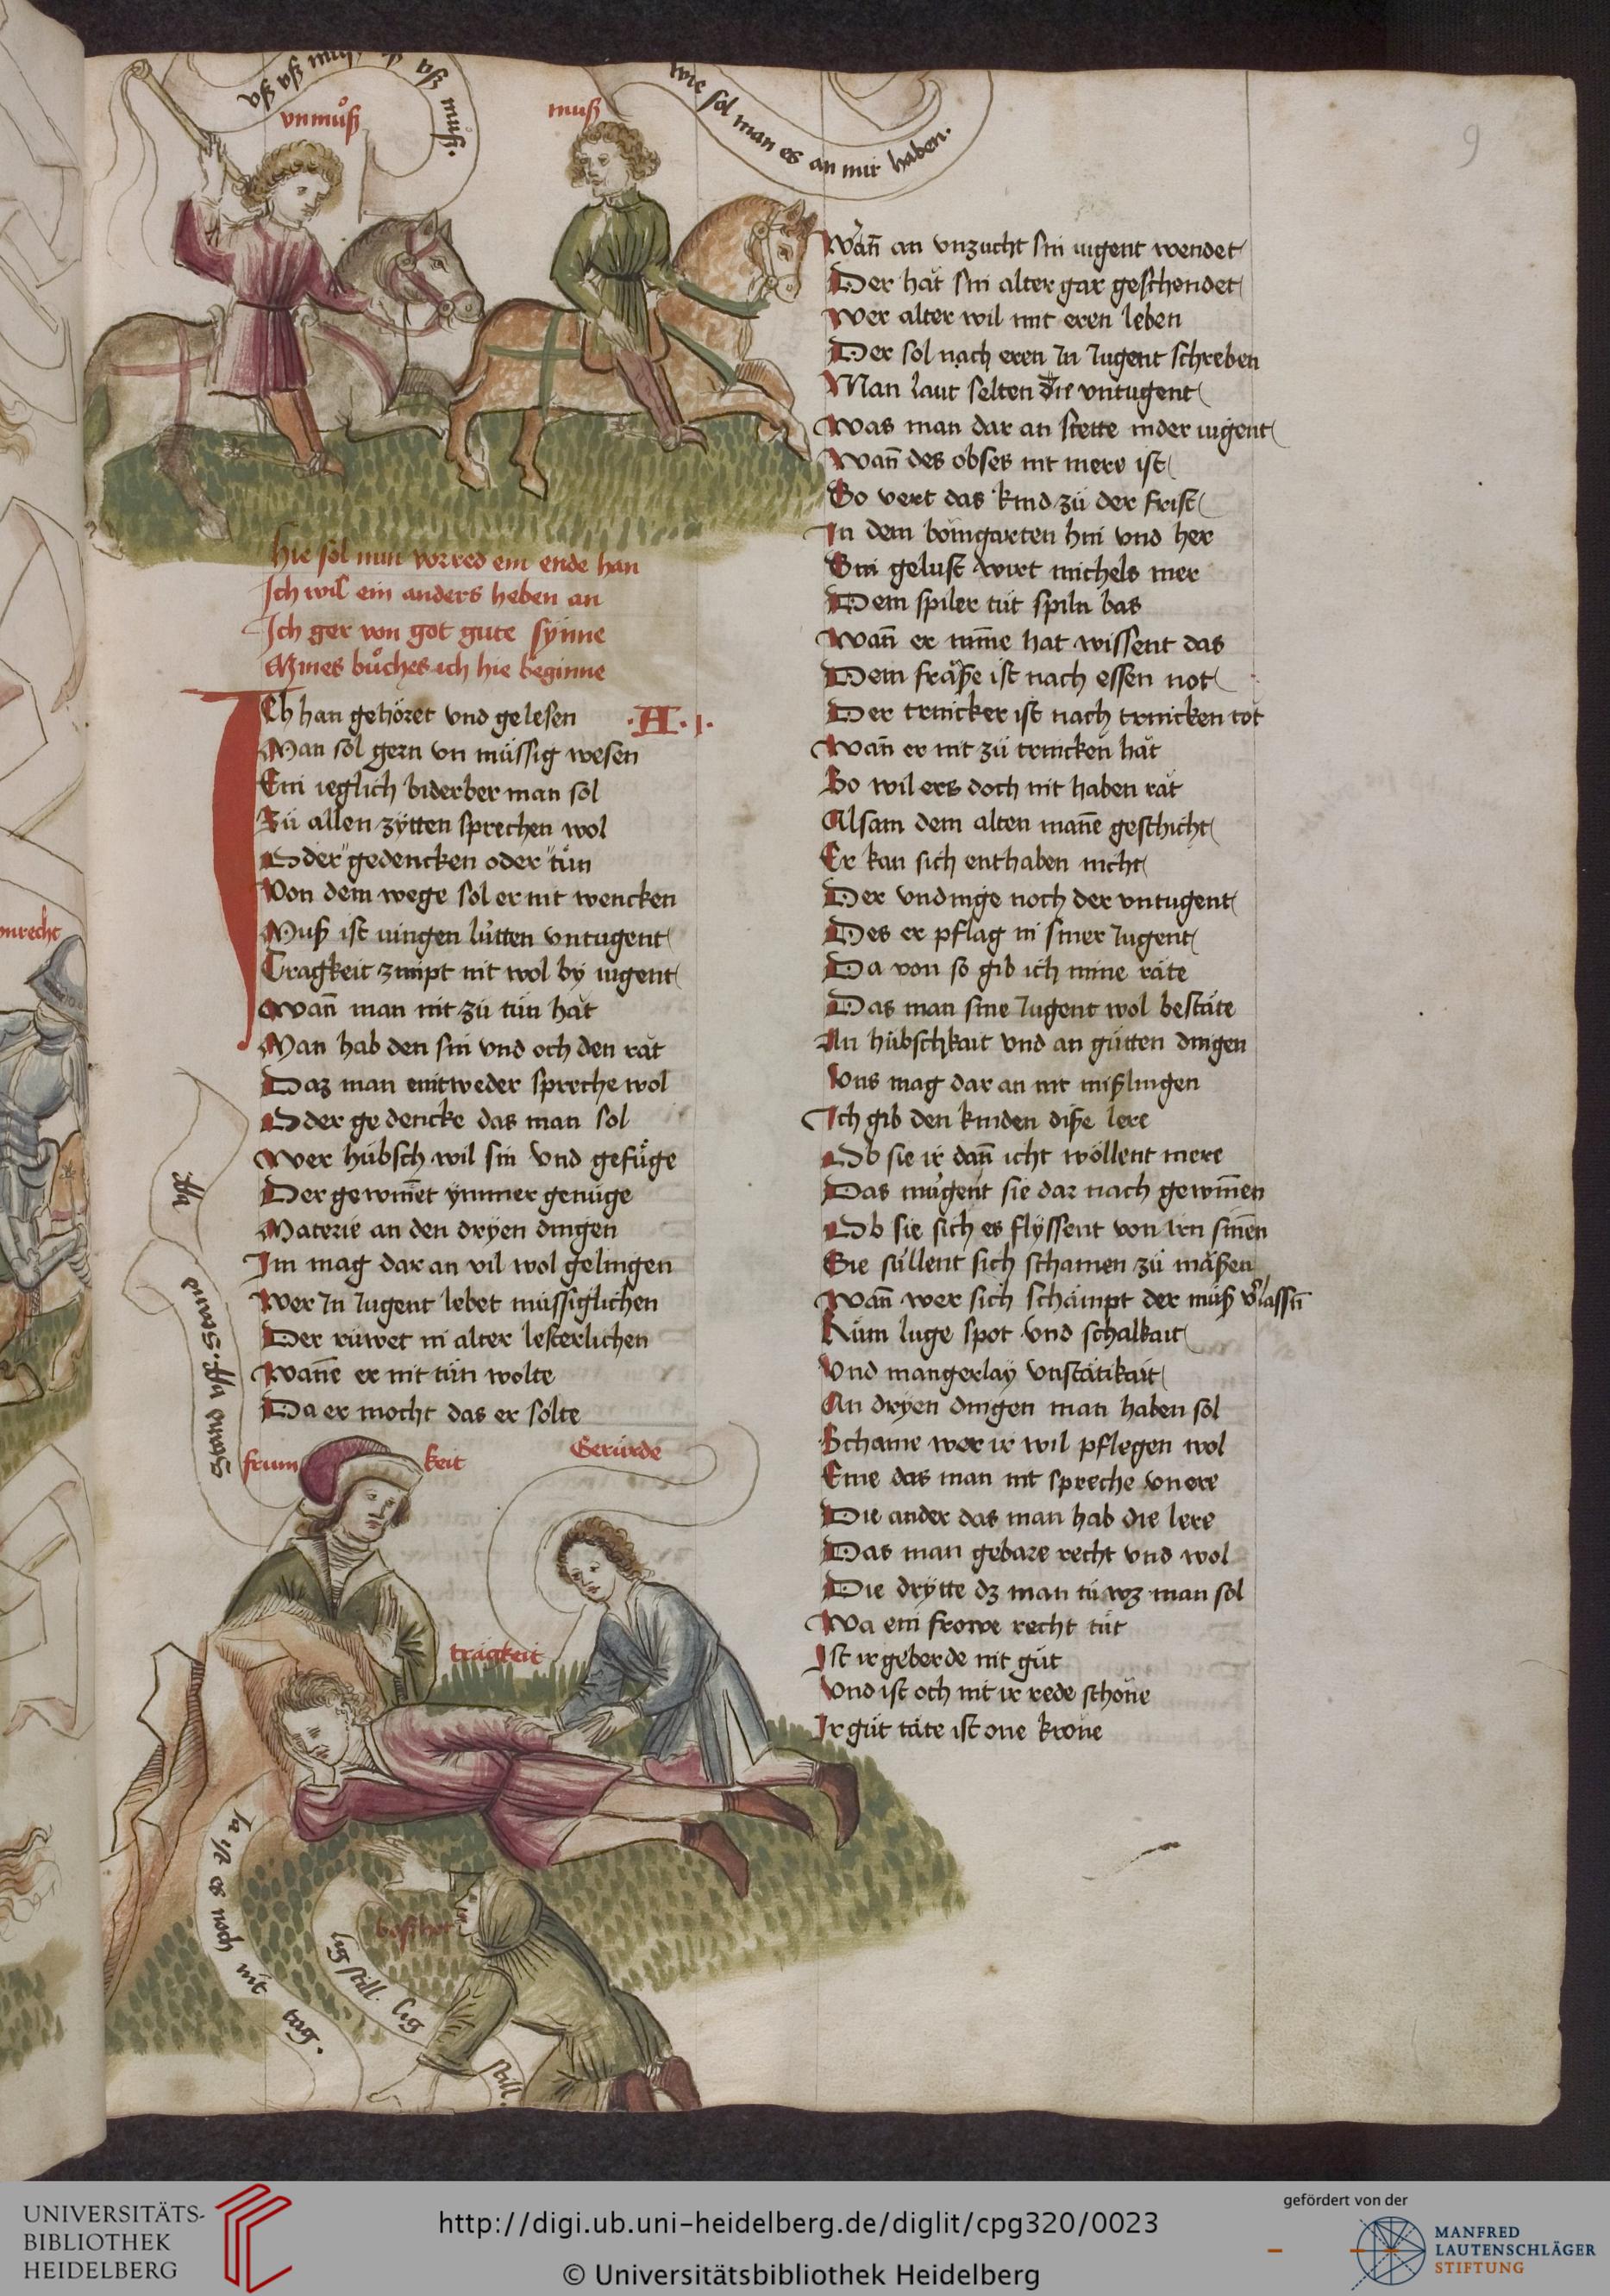 vß vß mus vß muß.
vnmůß
muß
wie sol man es an mir haben.
9
Hie sol nun vorred ein ende han
Ich wil ein anders heben an
Ich ger von got gute synne
Mines bůches ich hie beginne
Ich han gehöret vnd gelesen
·A·1·
Man sol gern vn müssig wesen
Ein ieglich biderber man sol
Zü allen zÿtten sprechen wol
Oder gedencken oder tün
Von dem wege sol er nit wencken
Muß ist iungen lütten vntugent
Tragkeit zimpt nit wol by iugent
Wañ man nit zü tün hät
Man hab den sin vnd och den rät
Daz man eintweder spreche wol
Oder ge dencke das man sol
Wer hübsch wil sin vnd gefüge
Der gewiñet ymmer genüge
Materie an den dryen dingen
Im mag dar an vil wol gelingen
Wer In Iugent lebet müssiglichen
Der rüwet in alter lesterlichen
Wañe er nit tün wolte
Da er mocht das er solte
frum
keit
Gerürde
sta
Stand vff. stand
trägkeit
Ia ist es noch nit tag.
boßheit
lig still. lig still.
Wañ an vnzucht sin iugent wendet
Der hät sin alter gar geschendet
Wer alter wil mit eren leben
Der sol nach eren In Iugent schreben
Man laut selten die vntugent
Was man dar an stette in der iugent
Wañ des obses nit mere ist
So vert das kind zü der frist
In dem bömgarten hin vnd her
Sin gelust wirt michels mer
Dem spiler tüt spiln bas
Wañ er nim̃e hat wissent das
Dem fräße ist nach essen not
Der trincker ist nach trincken tot
Wañ er nit zü trincken hät
So wil ers doch nit haben rät
Alsam dem alten mañe geschicht
Er kan sich enthaben nicht
Der vndinge noch der vntugent
Des er pflag in siner Iugent
Da von so gib ich mine räte
Das man sine Iugent wol bestäte
An hübschkait vnd an gütten dingen
Vns mag dar an nit mißlingen
Ich gib den kinden diße lere
Ob sie ir dañ icht wöllent mere
Das mügent sie dar nach gewiñen
Ob sie sich es flyssent von irn siñen
Sie süllent sich schamen zü mäßen
Wañ wer sich schämpt der müß v'lassñ
Rüm luge spot vnd schalkait
Vnd mangerlay vnstätikait
An dryen dingen man haben sol
Schame wer ir wil pflegen wol
Eine das man nit spreche vnere
Die ander das man hab die lere
Das man gebare recht vnd wol
Die drytte dz man tü wz man sol
Wa ein frowe recht tüt
Ist ir geberde nit güt
Vnd ist och nit ir rede schöne
Ir güt täte ist one krone
vnrecht
UNIVERSITÄTS-
BIBLIOTHEK
HEIDELBERG
http://digi.ub.uni-heidelberg.de/diglit/cpg320/0023
© Universitätsbibliothek Heidelberg
gefördert von der
MANFRED
LAUTENSCHLÄGER
STIFTUNG